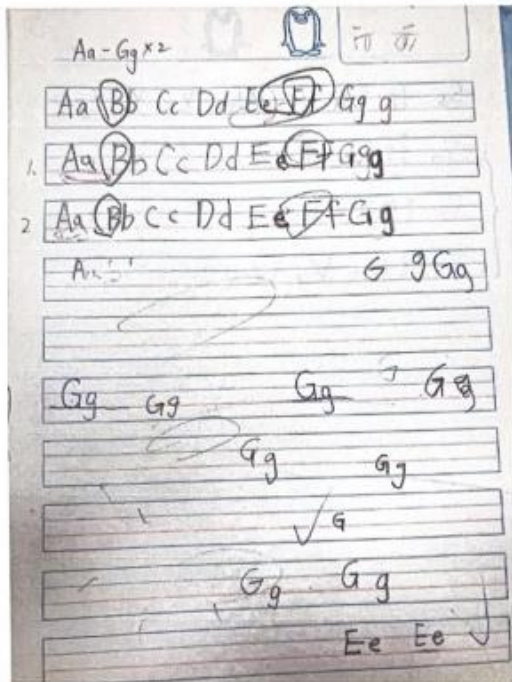 Aa-Gg×2
Aa Bb Cc Dd Ee Ff Gg g
1. Aa Bb Cc Dd Ee Ff Ggg
2 Aa Bb Cc Dd Ee Ff Gg
G g Gg
Gg Gg Gg Gg
Gg Gg
G
Gg Gg
Ee Ee